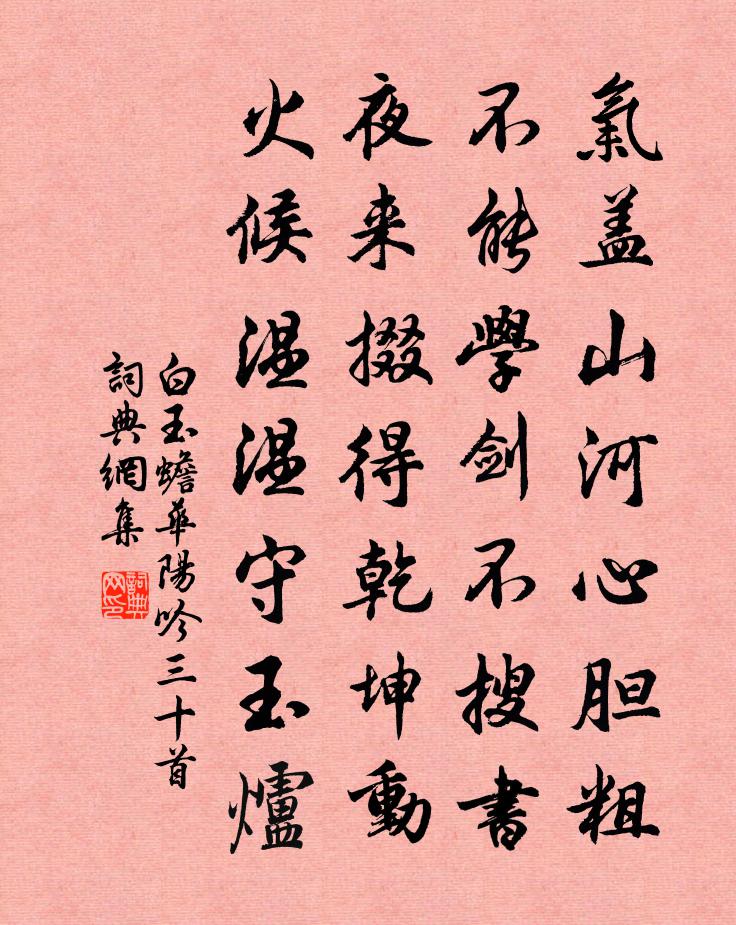 氣盖山河心胆粗
不能學剑不搜書
夜来掇得乾坤動
火候温温守玉爐
白玉蟾華陽吟三十首
詞典網集
詞典網印